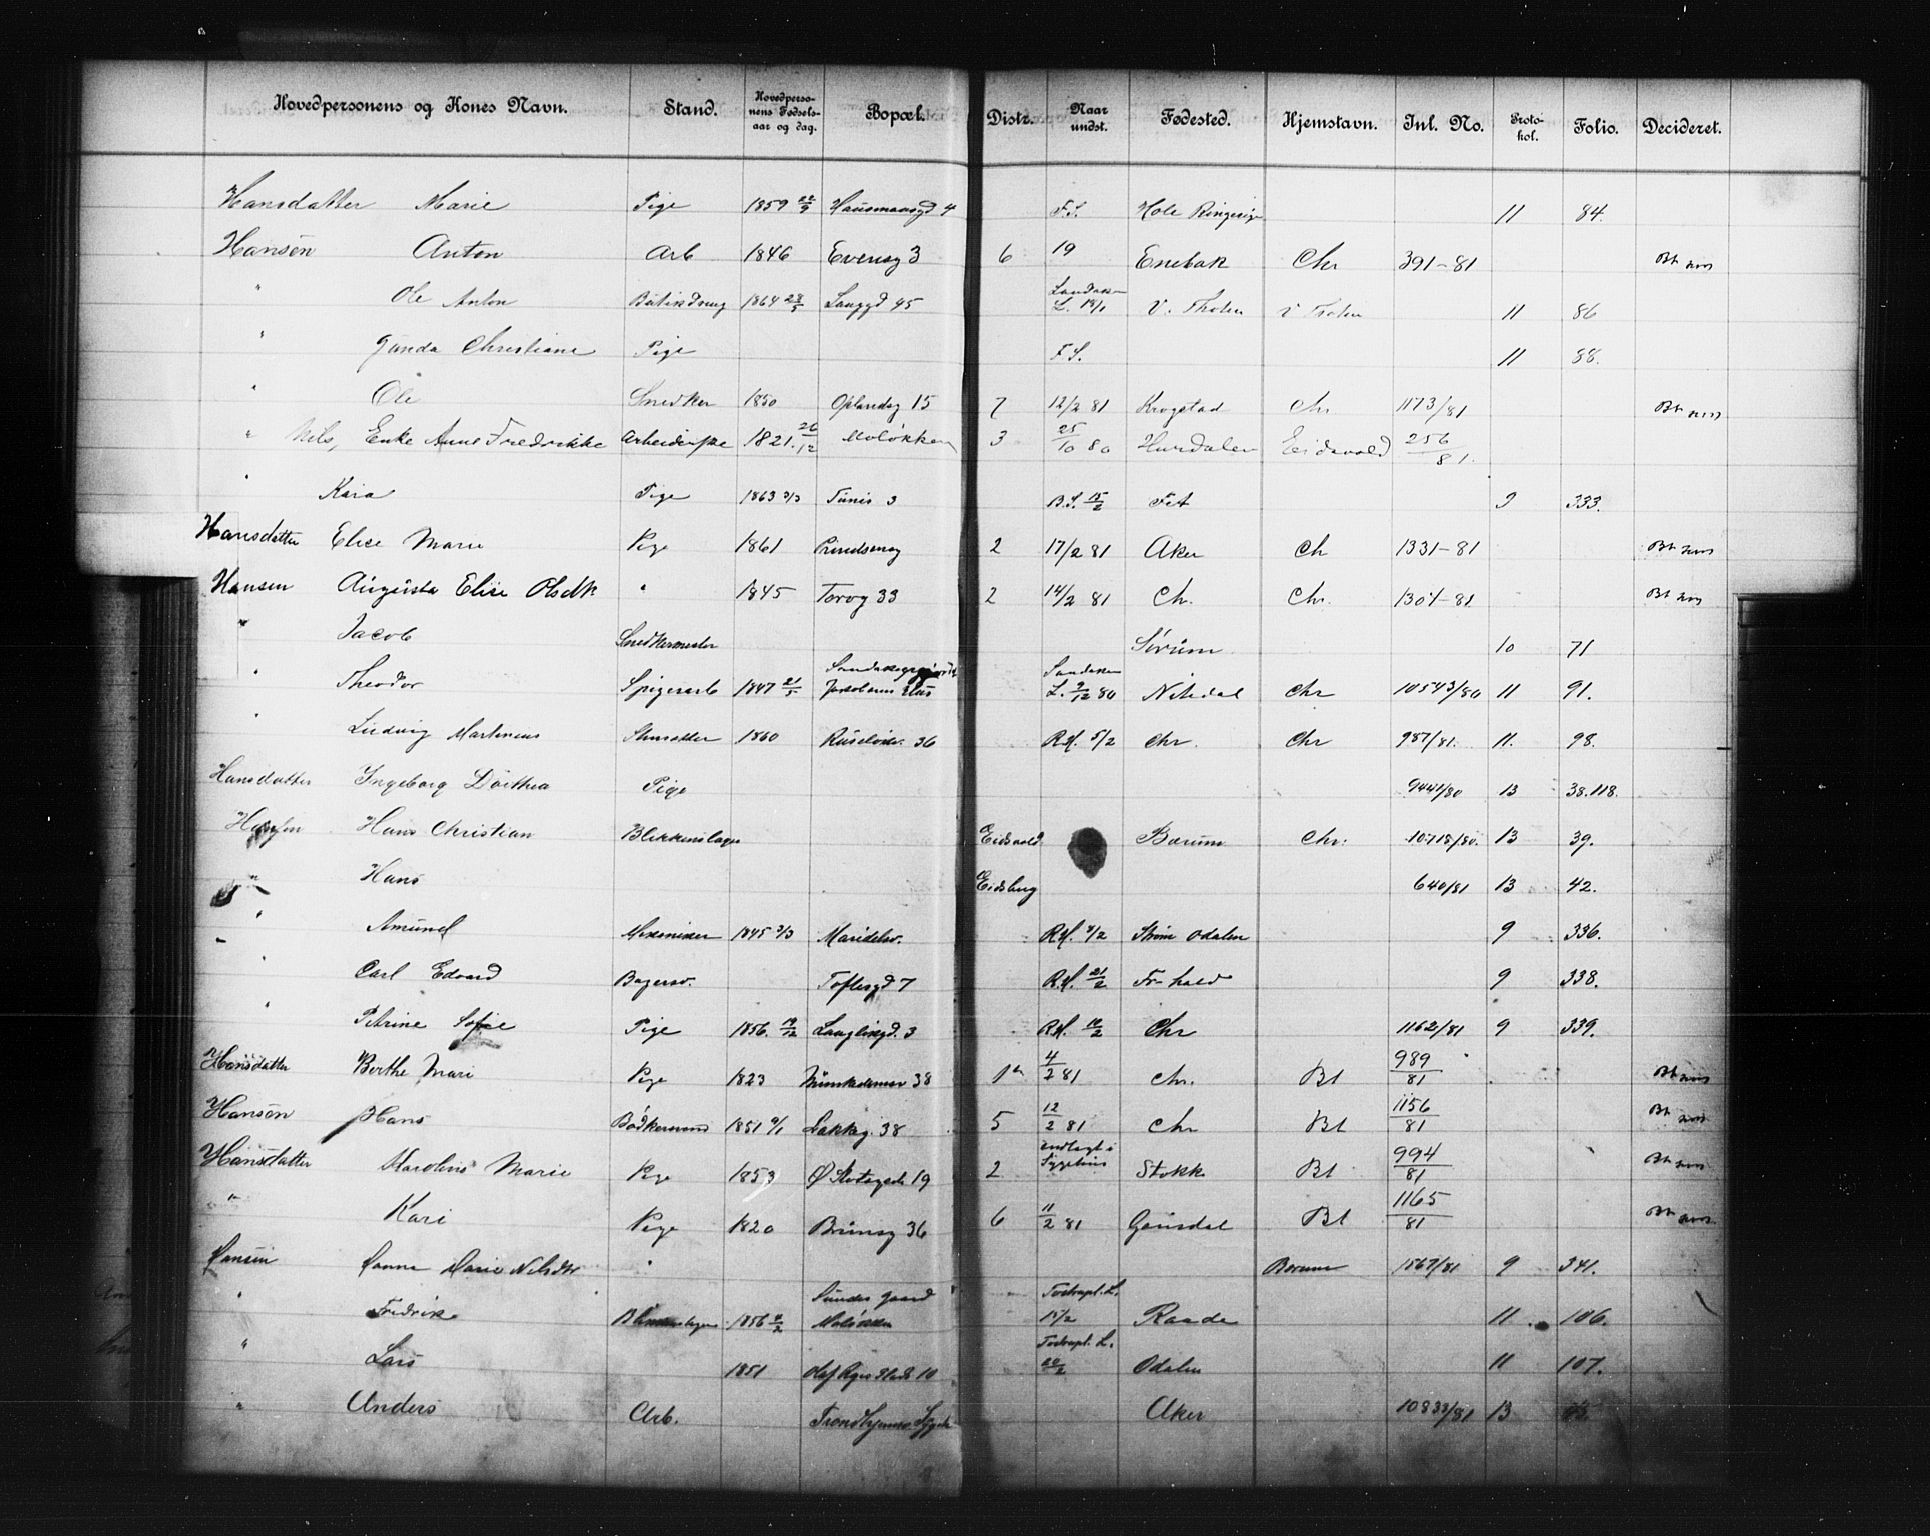 Hovedpersonens og Kones Navn. Stand. Hovedpersonens Fødselsaar og dag. Bopæl. Distr. Naar undst. Fødested. Hjemstavn. Inl. No. Protokol. Folio. Decideret.
Hansdatter Marie Pige 1859 22/9 Hausmansgd 4 F.S. Hole 11 84.
Hansen Anton Arb 1846 3 6 19 Enebak Chr 391-81 Bt
" Ole Anton 1864 28/5 Langgd 45 L. 18/1 V. Thoten V Toten 11 86
" Gunda Christiane Pige F.S. 11 88.
" Ole Snedker 1850 Oplandsg 15 7 12/2 81 Krogstad Chr 1173/81 Bt
" Nils, Enke Anne Fredrikke 1821. 26/12 Møløkken 3 25/10 80 Hurdalen Eidsvold 256/81.
" Kaia Pige 1863 3/3 Tunis 3 B.S. 15/2 Fet 9 333.
Hansdatter Elise Marie Pige 1861 2 17/2 81 Aker Ch 1331-81 Bt
Hansen Augusta Elise Olsdtr " 1845 Torvg 33 2 14/2 81 Ch. Chr. 1301-81 Bt
" Jacob Snedkermester Sørum 10 71
" Theodor Spigerarb 1847 21/5 Sandaker L. 9/12 80 Nitedal Chr 10543/80 11 91.
" Ludvig Martinius 1860 36 R.H. 5/2 Chr. Chr 987/81. 11. 98.
Hansdatter Ingeborg Dorthea Pige 9441/80 13 38.118.
Hansen Hans Christian Blikkenslager Eidsvold Bærum Chr. 10718/80. 13 39.
" Hans Eidsberg 640/81 13 42.
" Amund 1845 3/3 Maridalsv. R.H. Odalen 9 336.
" Carl Edvard Bagersv. Toftesgd 7 R.H. 21/2 Fr-hald 9 338.
" Petrine Sofie Pige 1856. 19/12 3 R.H. Chr 1162/81 9 339.
Hansdatter Berthe Mari Pige 1823 38 4/2 81 Chr. Bt 989/81 Bt
Hansen Hans Bødkersvend 1851 Lakkeg. 38 5 12/2 81 Chr Bt 1156/81 Bt
Hansdatter Karoline Marie Pige 1853 Ø Slotsgade 19 2 indlagt i Sygehus Stokke Bt 994/81 Bt
" Kari Pige 1820 Brunsg 36 6 11/2 81 Gausdal Bt 1165/81 Bt
Hansen Hanna Marie Nilsdtr " Bærum 1567/81 9 341.
" Fredrik Blikkenslager 1856 Møløkken 15/2 Raade 11. 106.
" Lars 1851 Olaf Ryes Plads 10 22/2 Odalen 11 107.
" Anders Arb. Aker 10833/81 13